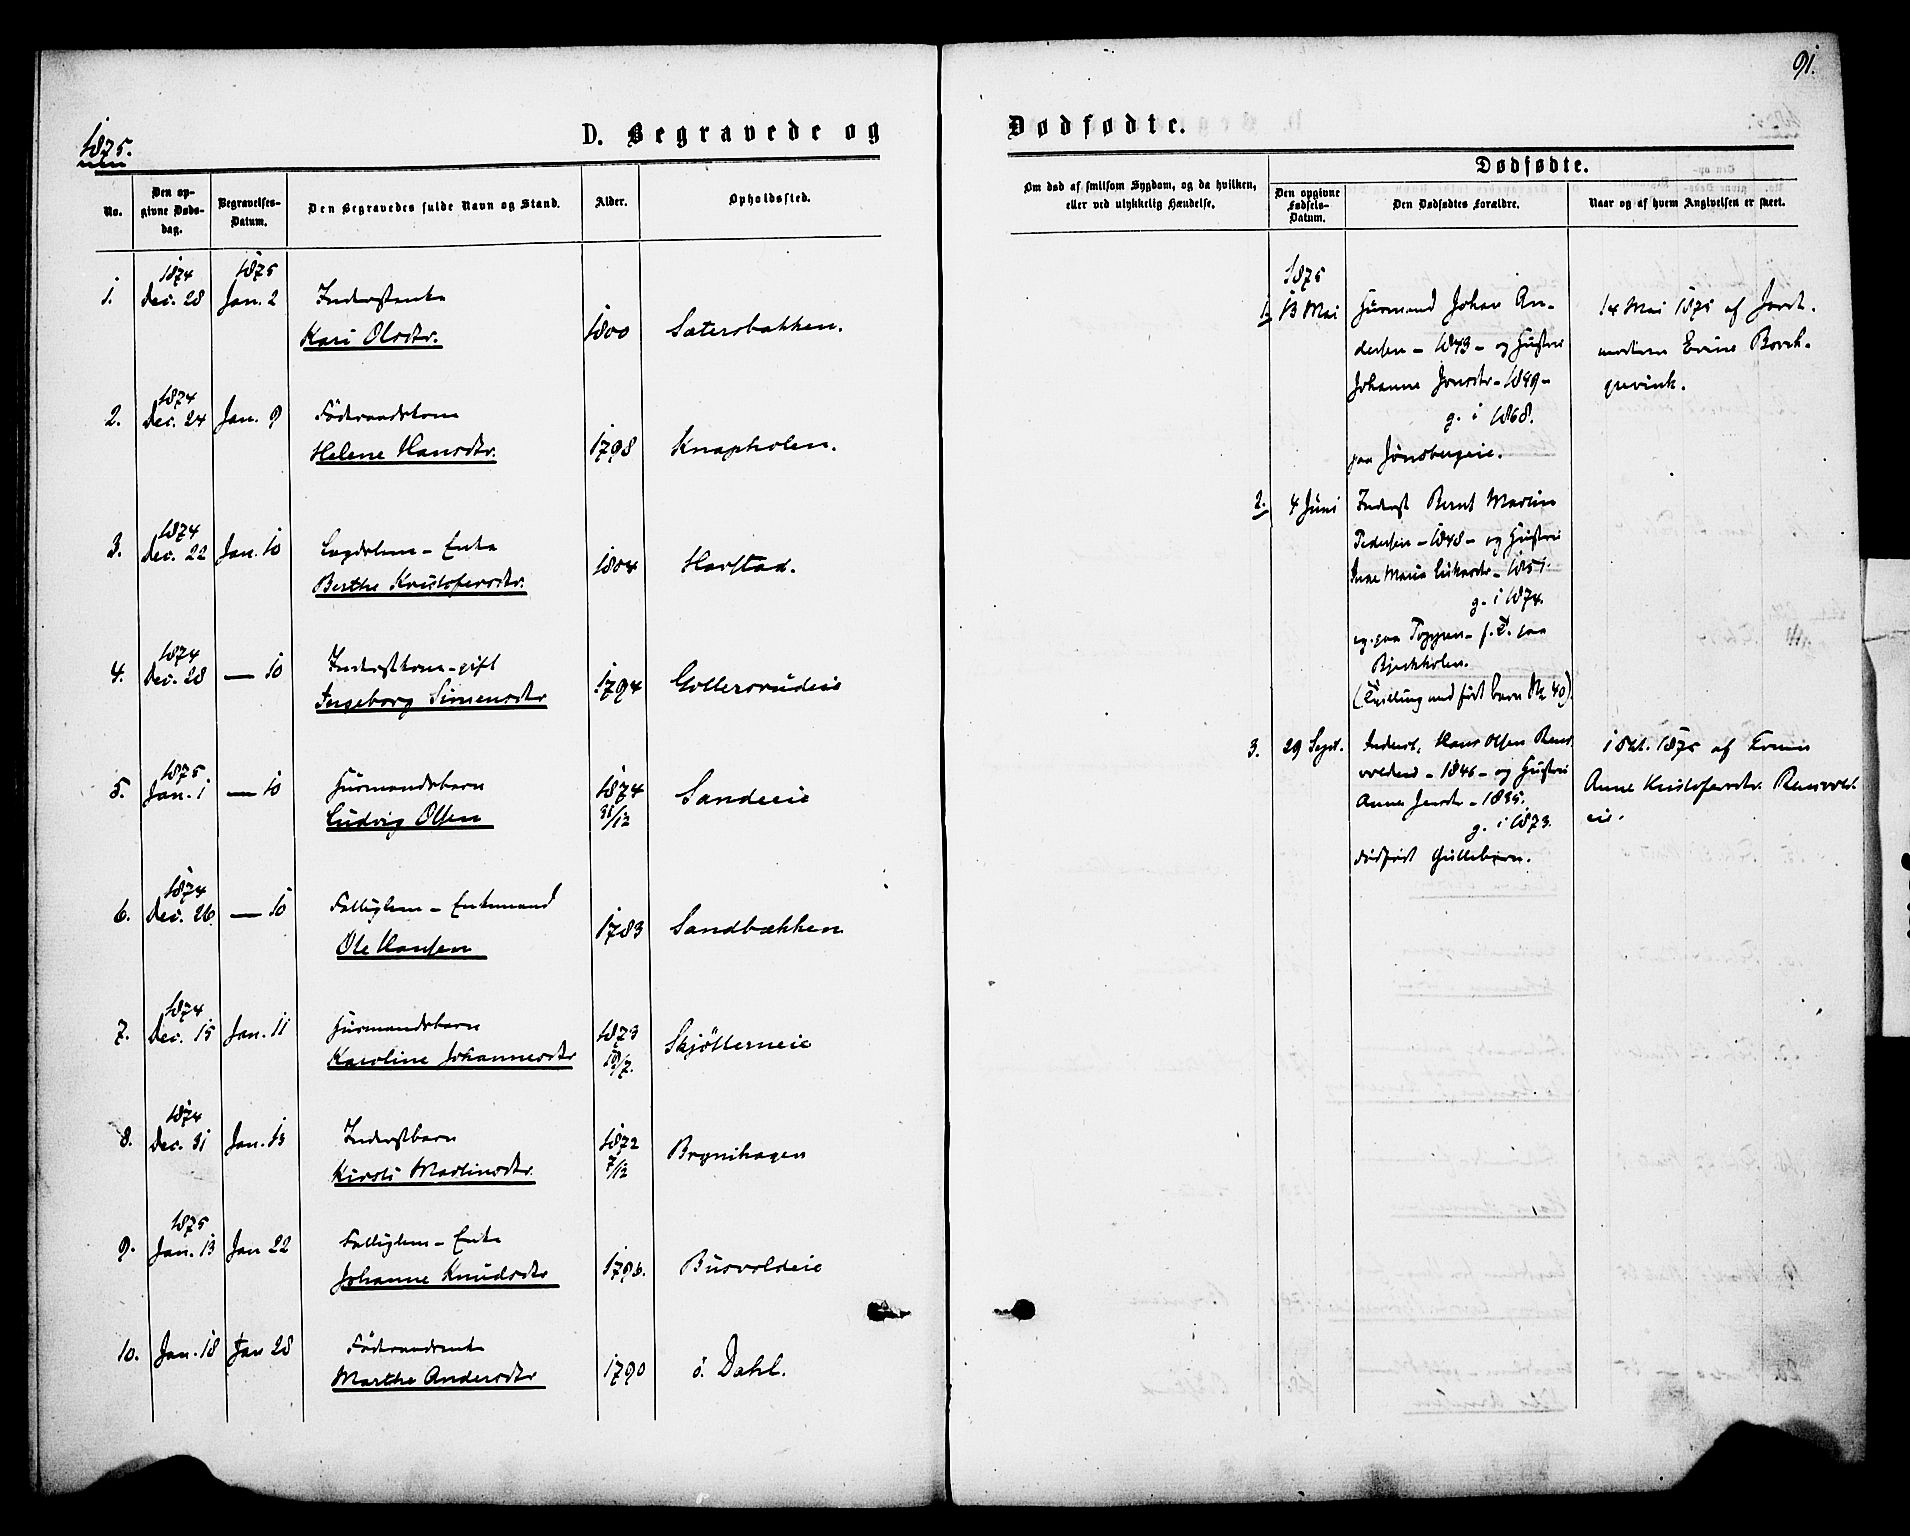 91.
1875.
D. Begravede og
Dødfødte.
No.
Den opgivne Døds-dag.
Begravelses-Datum.
Den Begravedes fulde Navn og Stand.
Alder.
Opholdssted.
Om død af smitsom Sygdom, og da hvilken, eller ved ulykkelig Hændelse.
Dødfødte.
Den opgivne Fødsels-Datum.
Den Dødfødtes Forældre.
Naar og af hvem Angivelsen er skeet.
1874 1875
1. Dec. 28 Jan. 2 Inderstenke
Kari Olsdtr. 1800 Sætersbakken.
1874
2. Dec. 24 Jan. 9 Födraadskone
Helene Hansdtr. 1798 Knapholen.
1874
3. Dec. 22 Jan. 10 Lægdslem - Enke
Berthe Kristofersdtr. 1804 Harstad.
1874
4. Dec. 28 — 10 Inderstkone - gift
Ingeborg Simensdtr 1794 Gollersrudeie
1875
5. Jan. 1 — 10 Husmandsbarn 1874
Ludvig Olsen 31/12 Sandeeie
1874
6. Dec. 26. — 10 Fattiglem - Enkemand
Ole Hansen 1783 Sandbækken
1874
7. Dec. 15 Jan. 11 Husmandsbarn 1873
Karoline Johannesdtr 19/7. Skjötterneie
1874
8. Dec. 31 Jan. 13 Inderstbarn 1872
Kirsti Martinsdtr. 7/12 Brynihagen
1875
9. Jan. 13 Jan 22 Fattiglem - Enke
Johanne Knudsdtr 1796. Busvoldeie
10. Jan. 18 Jan 28 Födraadsenke
Marthe Andersdtr 1790 ö. Dahl.
1875
1. 13 Mai Husmand Johan An-
dersen - 1843 - og Hustru
Johanne Jonsdtr - 1849 -
g. i 1868.
paa Jönsbergeie.
14 Mai 1875 af Jord-
moderen Erine Borch-
grevink.
2. 4 Juni Inderst Bernt Martin
Pedersen - 1848 - og Hustru
Maria - 1851.
g. i 1874.
paa Toppen - paa
Bjerkholen.
(Tvilling med födt barn No 40).
3. 29 Sept. Inderst. Hans Olsen Rens-
voldeie - 1846 - og Hustru
Anne Jensdtr - 1835.
g. i 1873.
dödfödt Guttebarn.
1 Okt. 1875 af
Anne Kristofersdtr. Rensvold-
eie.